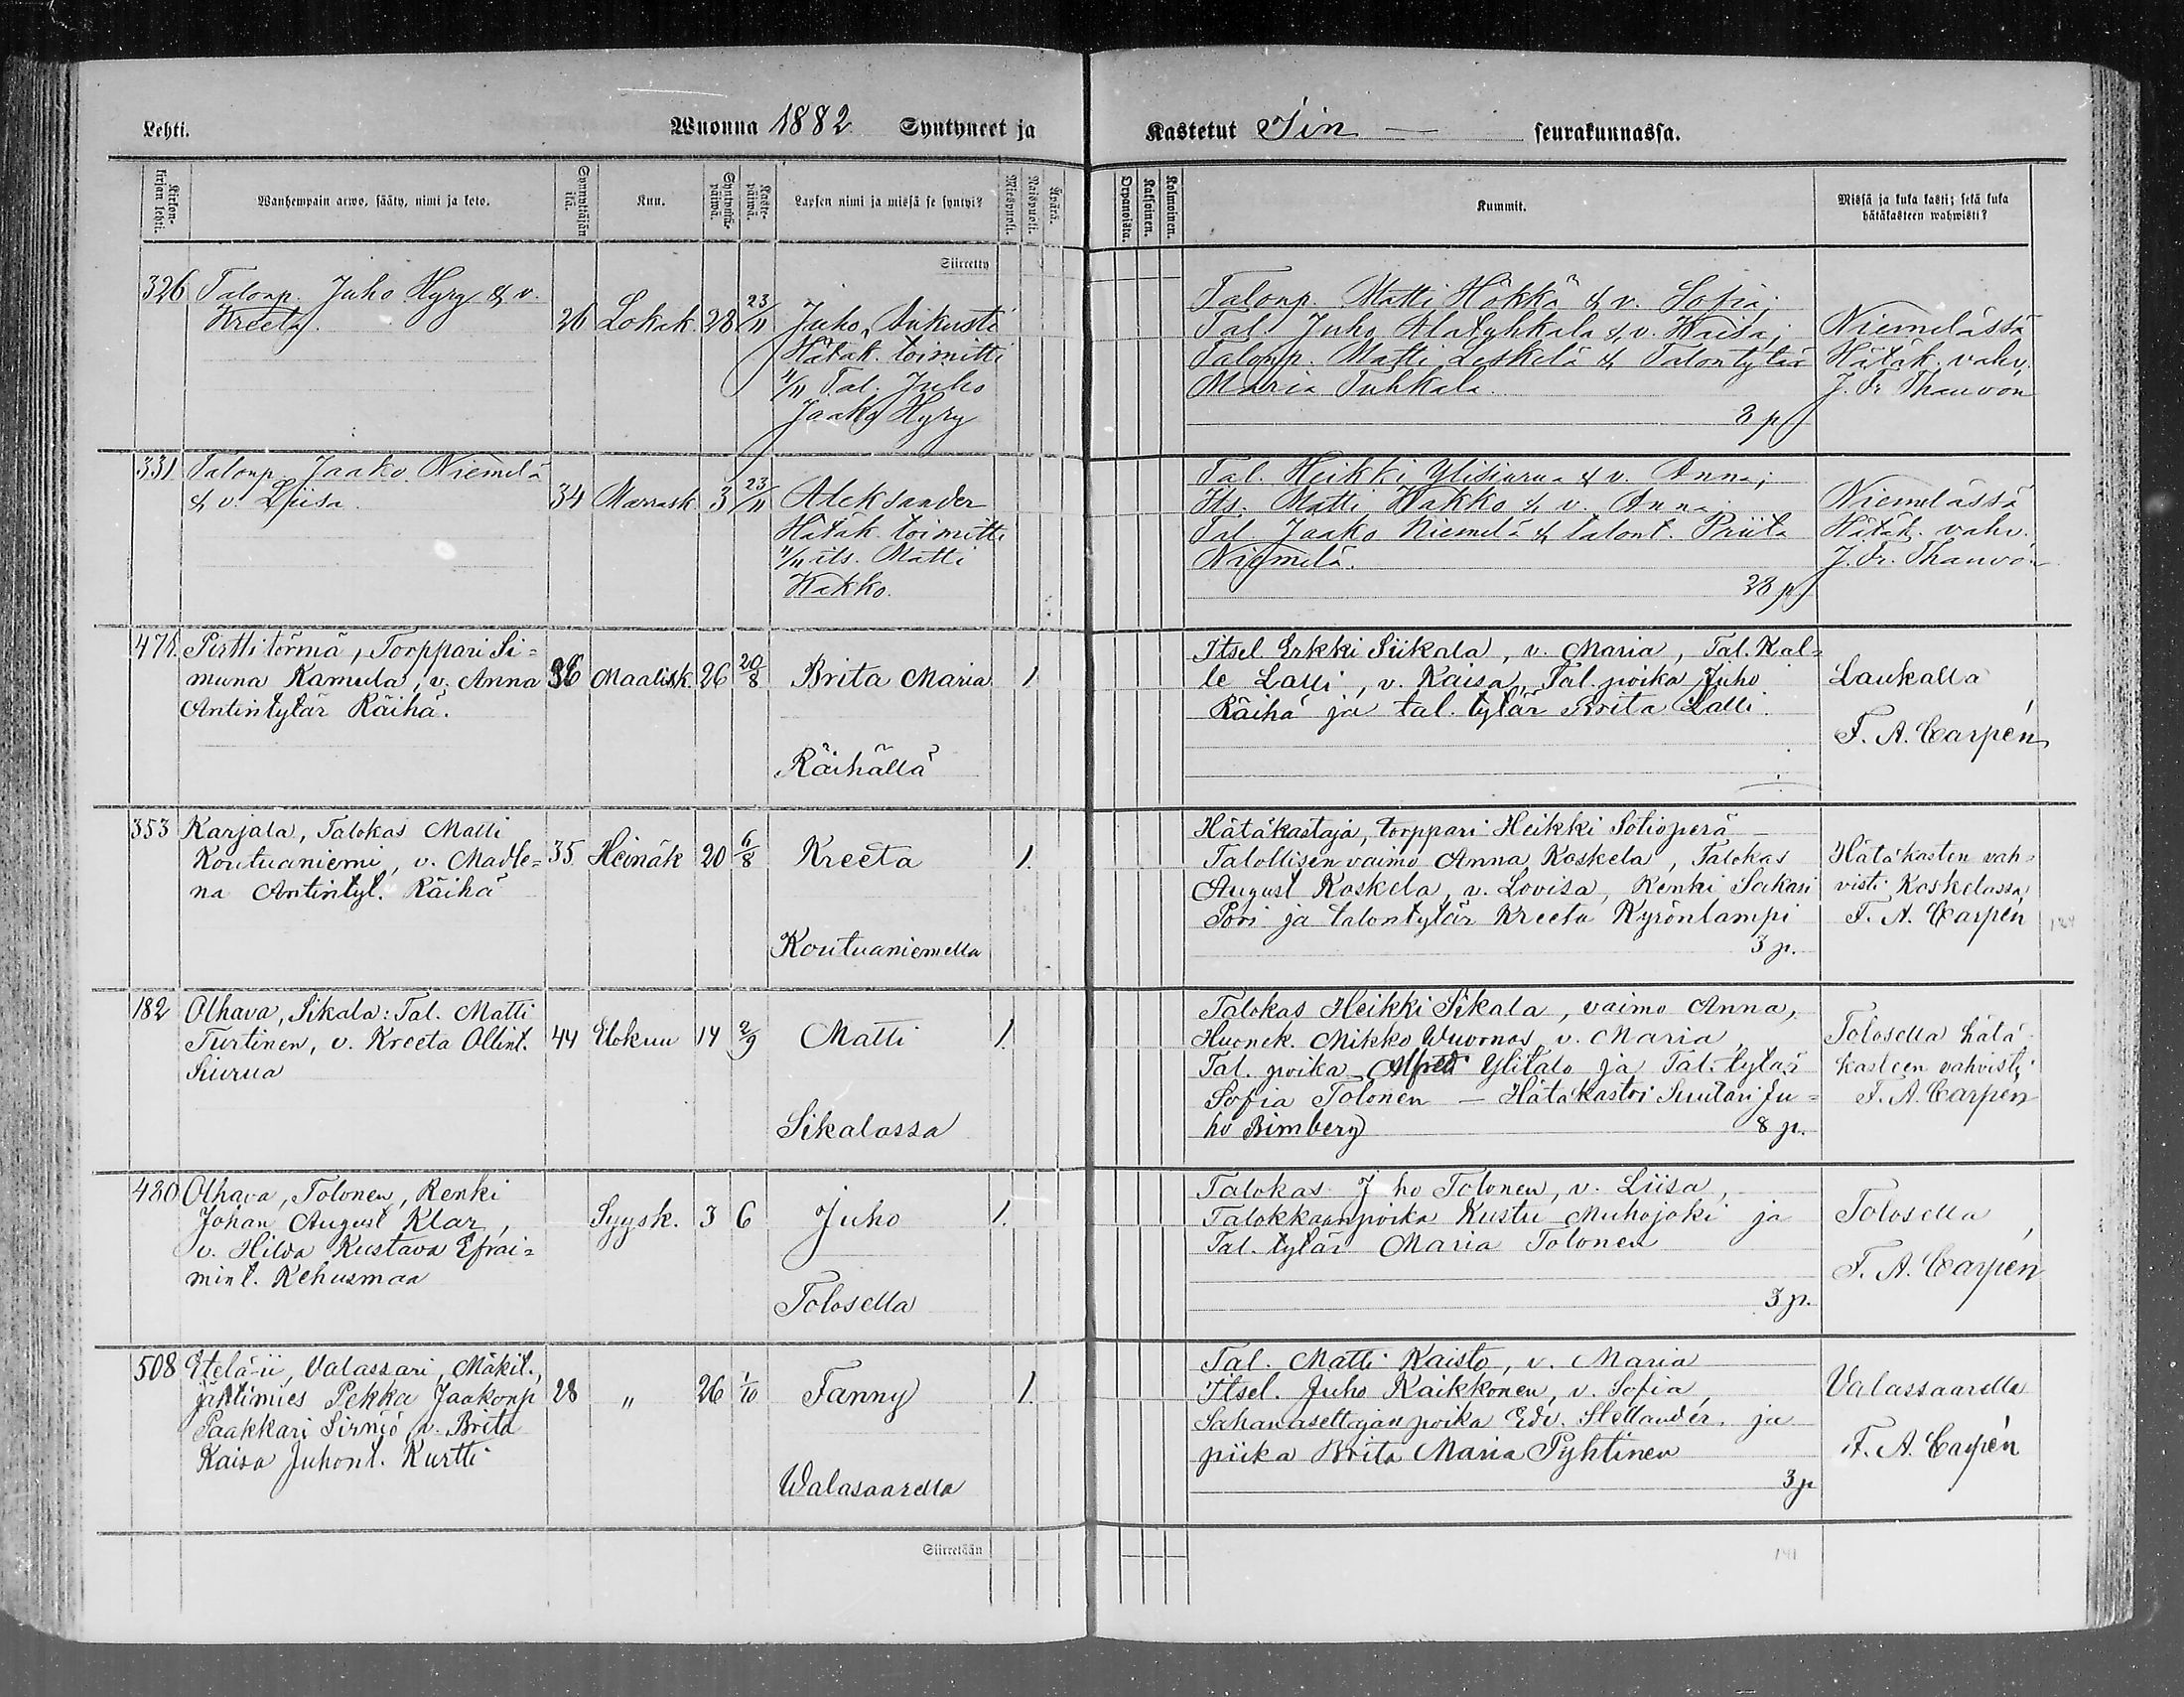 Lehti. Wuonna 1882 Syntyneet ja
Kastetut Iin — seurakunnassa.
Kirkon-kirjan lehti.
Wanhempain arwo, sääty, nimi ja koto.
Synnyttäjän ikä.
Kuu.
Syntymä-päiwä.
Kaste-päiwä.
Lapsen nimi ja missä se syntyi?
Miespuoli.
Naispuoli.
Äpärä.
Orpanoista.
Kaksoinen.
Kolmoinen.
Kummit.
Missä ja kuka kasti; sekä kuka
hätäkasteen wahwisti?
Siirretty
326 Talonp. Juho Hyry & v.
Kreeta. 26 Lokak. 28 23/11 Juho Aukusti
Hätäk. toimitti
4/11 Tal. Juho
Jaako Hyry
Talonp. Matti Hökkä & v. Sofia;
Tal. Juho Alatyhkala & v. Kaisa;
Talonp. Matti Leskelä & Talontytär
Maria Tuhkala.
3 p
Niemelässä
Hätäk. vahv.
J. Fr. Thauvon
331 Talonp. Jaako Niemelä
& v. Liisa. 34 Marrask. 3 23/11 Aleksander
Hätäk. toimitti
4/11 its. Matti
Kakko.
Tal. Heikki Ylisiurua & v. Anna;
Its. Matti Kakko & v. Anna
Tal. Jaako Niemelä & talont. Priita
Niemelä.
28 p
Niemelässä
Hätäk. vahv.
J. Fr. Thauvon
471. Pirttitörmä, Torppari Si=
muna Kamula, v. Anna 36 Maalisk. 26 20/8 Brita Maria 1
Antintytär Räihä.
Räihällä
Itsel. Erkki Siikala, v. Maria, Tal. Kal=
le Lalli, v. Kaisa, Tal. poika Juho
Räihä ja tal. tytär Brita Lalli.
Laukalla
F. A. Carpén
353 Karjala, Talokas Matti
Koutuaniemi, v. Madle= 35. Heinäk 20 6/8 Kreeta 1.
na Antintyt. Räihä
Koutuaniemellä
Hätäkastaja, torppari Heikki Solioperä —
Talollisen vaimo Anna Koskela, Talokas
August Koskela, v. Lovisa, Renki Sakari
Pori ja talontytär Kreeta Kyrönlampi
3 p.
Hätäkasten vah=
visti Koskelassa
F. A. Carpén
182 Olhava, Sikala: Tal. Matti
Turtinen, v. Kreeta Ollint. 44 Elokuu 14 2/9 Matti 1.
Siurua
Sikalassa
Talokas Heikki Sikala, vaimo Anna,
Huonek. Mikko Wuornos, v. Maria,
Tal. poika Alfred Ylitalo ja Tal. tytär
Sofia Tolonen — Hätäkastoi Suutari Ju=
ho Bimberg 8 p.
Tolosella hätä
kasteen vahvisti
F. A. Carpén
480 Olhava, Tolonen, Renki
Johan August Klar, Syysk. 3 6 Juho 1.
v. Hilda Kustava Efrai=
mint. Kehusmaa
Tolosella
Talokas J ho Tolonen, v. Liisa,
Talokkaan poika Kustu Muhojoki ja
Tal. tytär Maria Tolonen
3 p.
Tolosella
F. A. Carpén
508 Etelä-ii, Valassari, Mäkit.,
jahtimies Pekka Jaakonp 28 „ 26 1/10 Fanny 1.
Paakkari Sirniö, v. Brita
Kaisa Juhont. Kurtti
Walasaarella
Tal. Matti Kaisto, v. Maria
Itsel. Juho Kaikkonen, v. Sofia,
Sahanasettajan poika Edv. Stellander. ja
piika Brita Maria Pyhtinen
3 p
Valassaarella
F. A. Carpén
Siirretään